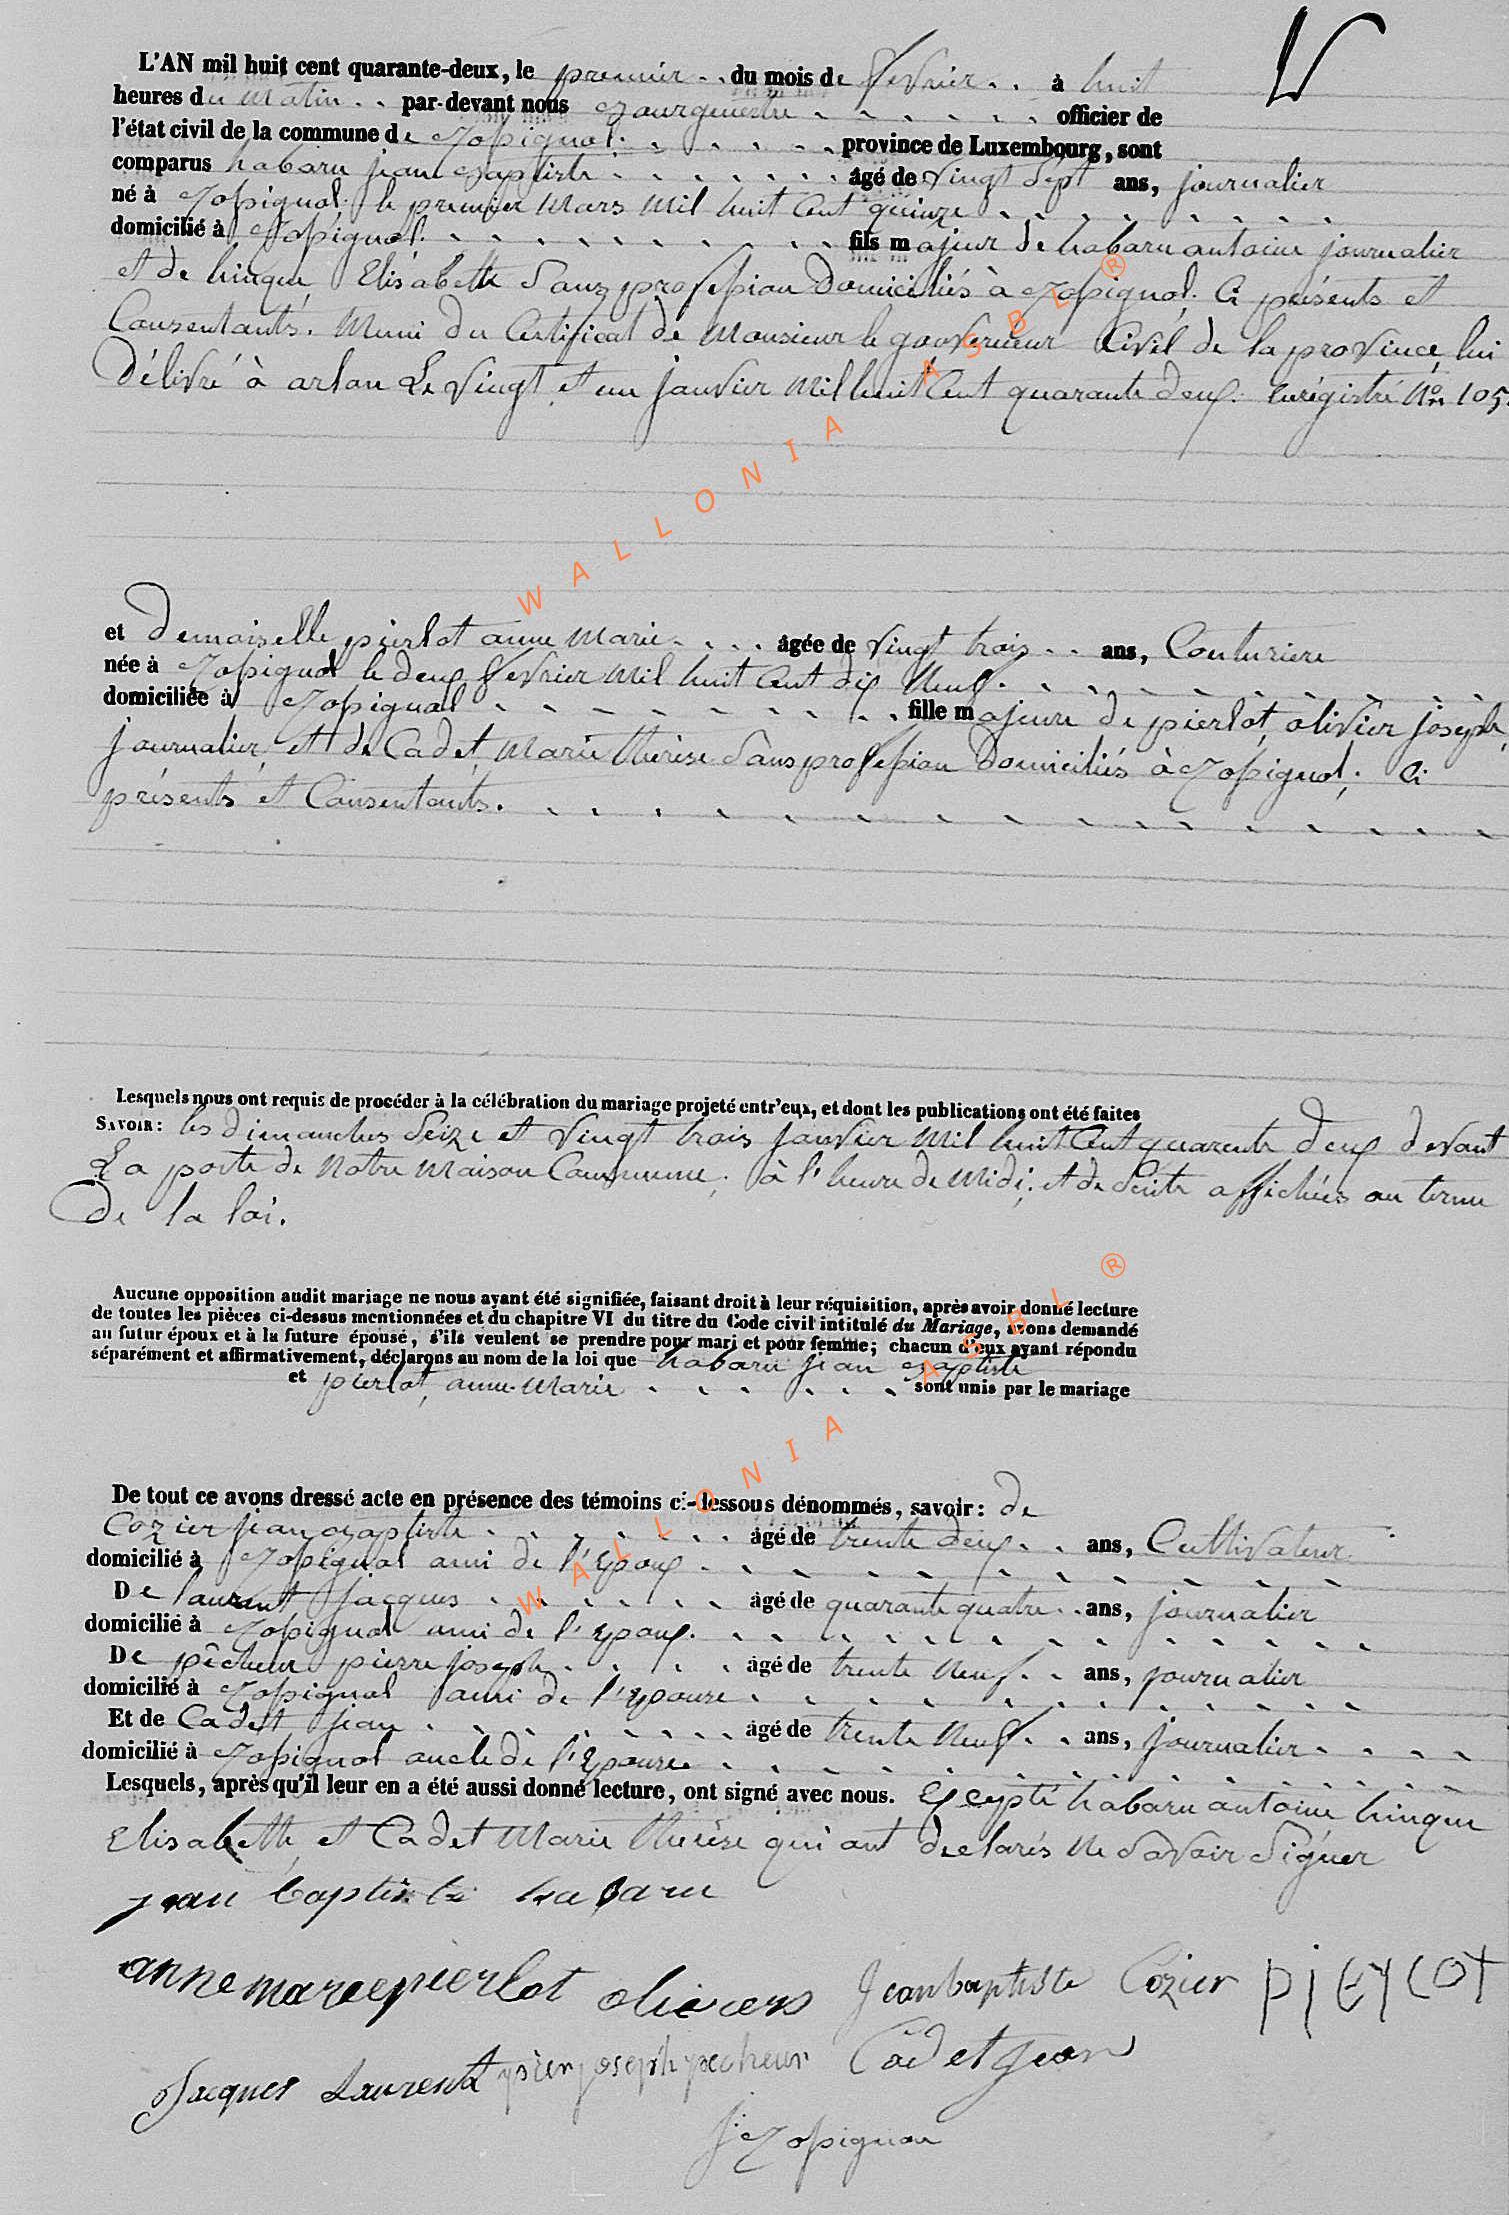 L'AN mil huit cent quarante-deux, le premier du mois de fevrier à huit
heures du Matin par-devant nous Bourguestre officier de
l'état civil de la commune de Rossignol province de Luxembourg, sont
comparus habaru jean Baptiste âgé de vingt sept ans, journalier
né à Rossignol le premier Mars Mil huit Cent quinze
domicilié à Rossignol fils majeur de habaru antoine journalier
et de hinque Elisabeth Sans profession Domiciliés à Rossignol. Ci présents et
Consentants. Muni du Certificat de Monsieur le gouverneur Civil de la province lui
Délivré à arlon Le Vingt et un janvier Mil huit Cent quarante deux. Enrégistré No 105.
et Demoiselle pierlot anne Marie âgée de Vingt trois ans, Couturiere
née à Rossignol le deux fevrier Mil huit Cent dix Neuf.
domiciliée à Rossignol fille majeure de pierlot, olivier joseph,
journalier, et de Cadet, Marie thérèse Sans profession Domiciliés à Rossignol; Ci
présents et Consentants.
Lesquels nous ont requis de procéder à la célébration du mariage projeté entr'eux, et dont les publications ont été faites
SAVOIR: les Dimanches Seize et Vingt trois janvier Mil huit Cent quarante deux devant
La porte de Notre Maison Commune, à l'heure de Midi; et de Suite affichées au terme
De la loi.
Aucune opposition audit mariage ne nous ayant été signifiée, faisant droit à leur réquisition, après avoir donné lecture
de toutes les pièces ci-dessus mentionnées et du chapitre VI du titre du Code civil intitulé du Mariage, avons demandé
au futur époux et à la future épouse, s'ils veulent se prendre pour mari et pour femme; chacun d'eux ayant répondu
séparément et affirmativement, déclarons au nom de la loi que habaru jean Baptiste
et pierlot, anne-Marie sont unis par le mariage
De tout ce avons dressé acte en présence des témoins ci-dessous dénommés, savoir: de
Cozier jean Baptiste âgé de trente deux ans, Cultivateur
domicilié à Rossignol ami de l'Epoux
De laurent jacques âgé de quarante quatre ans, journalier
domicilié à Rossignol ami de l'Epoux.
De pêcheur pierre joseph âgé de trente Neuf ans, journalier
domicilié à Rossignol ami de l'Epouse
Et de Cadet, jean âgé de trente Neuf ans, journalier
domicilié à Rossignol oncle de l'Epouse
Lesquels, après qu'il leur en a été aussi donné lecture, ont signé avec nous. Excepté habaru antoine hinque
Elisabeth, et Cadet Marie thérèse qui ont declarés Ne Savoir Signer
jean baptiste habaru
anne marie pierlot olivier Jean baptiste Cozier PIEYLOT
Jacques Laurent pier joseph pecheur Cadet jean
J: Rossignon
WALLONIA ASBL ®
WALLONIA ASBL ®